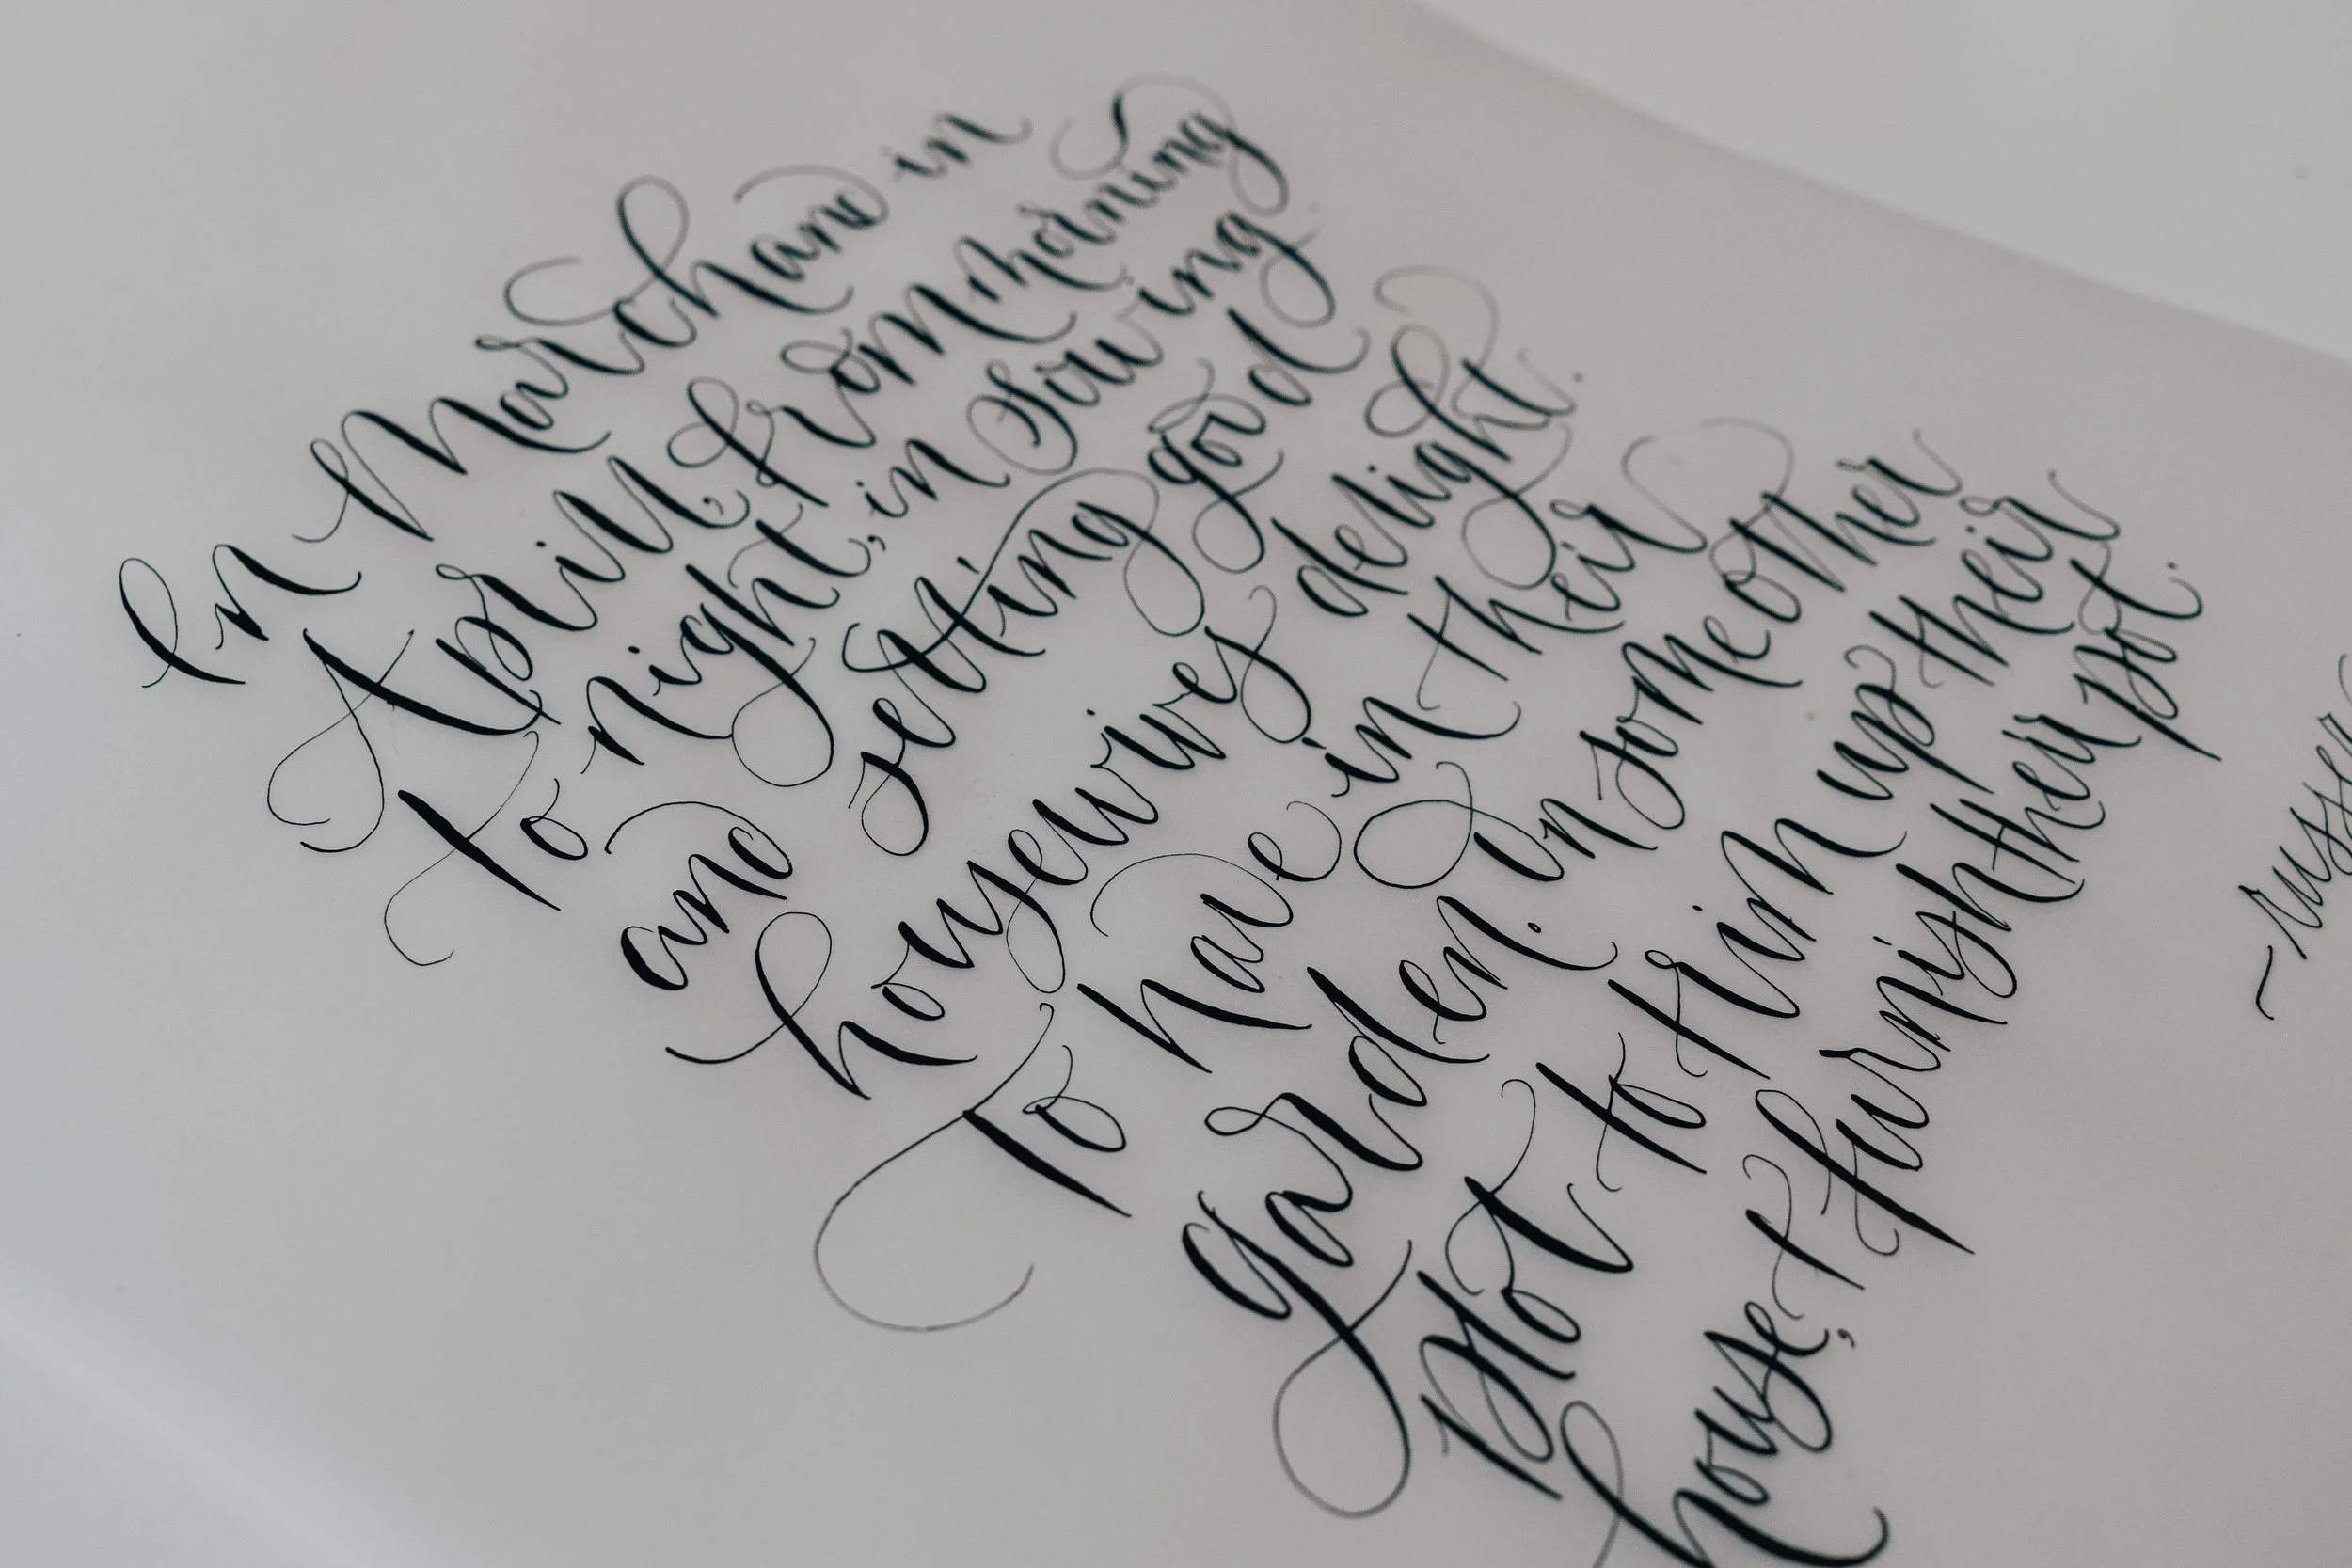 In March and in
Aprill, from morning
to night, in Sowing
and setting good
housewives delight.
To have in their
garden. on some other
plot to trim up their
house, + furnish their pot.